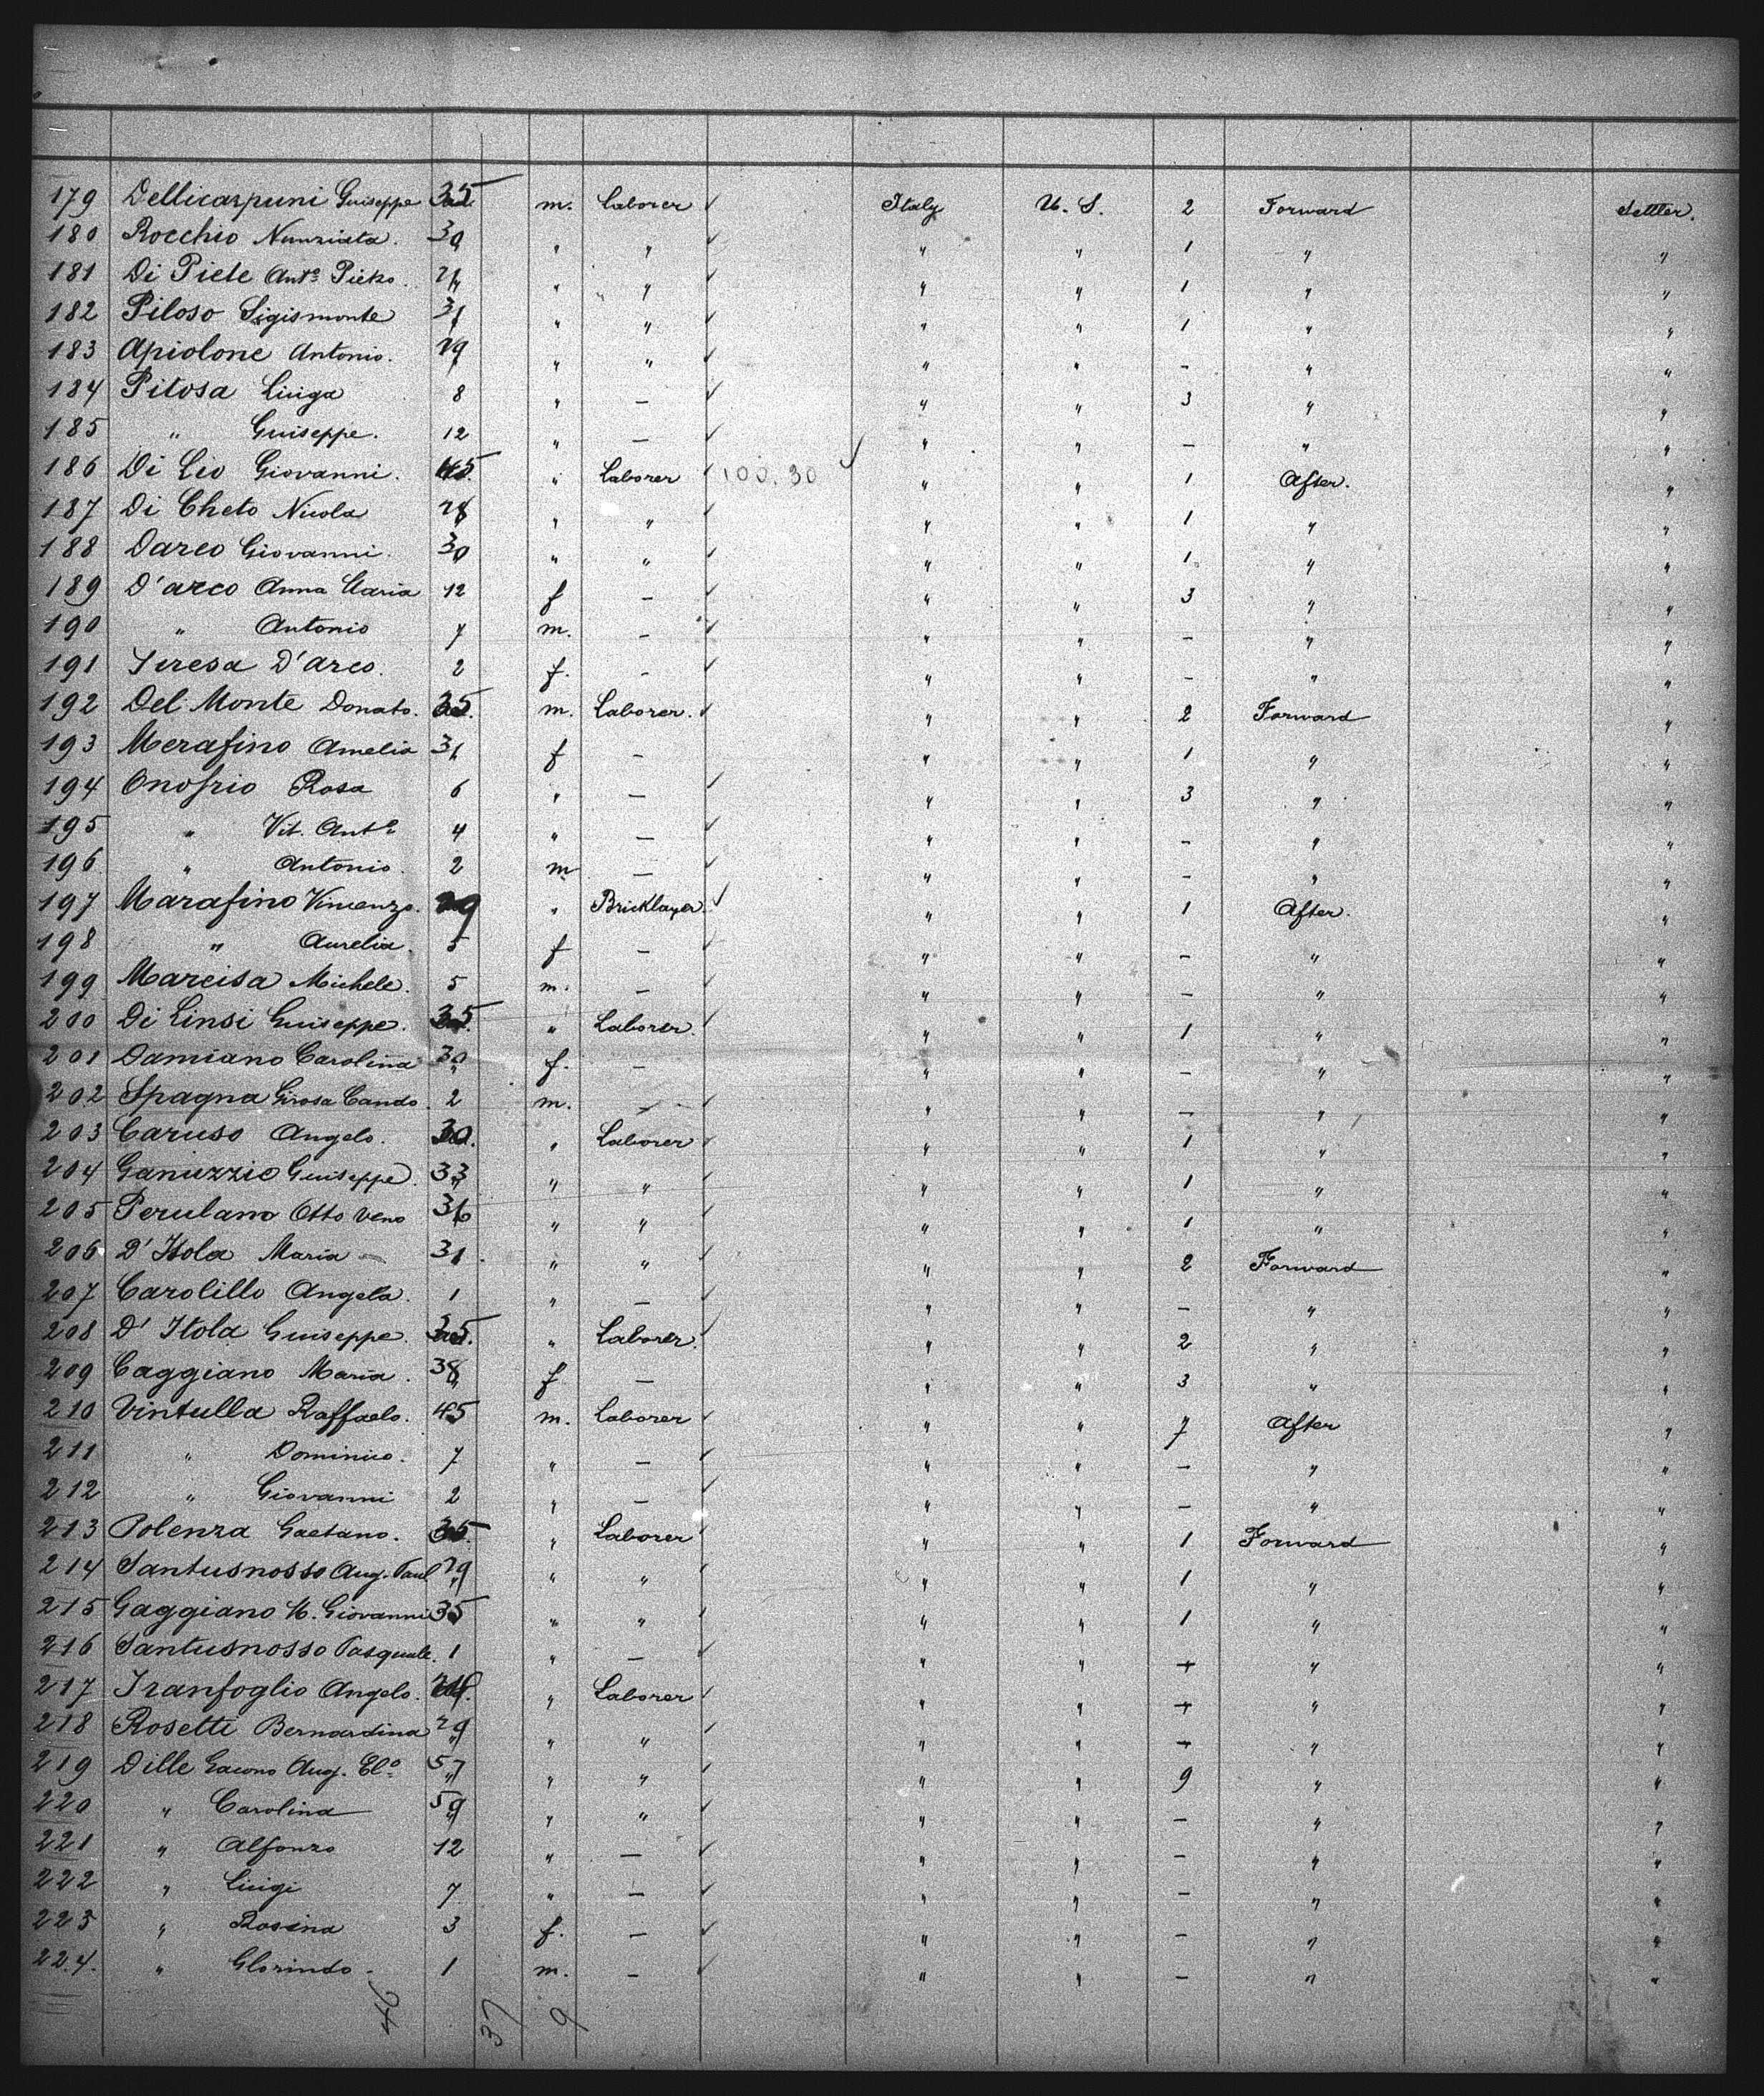 179 Dellicarpuni Guiseppe 35 m. Laborer ✓ Italy U. S. 2 Forward Settler.
180 Rocchio Nunziata. 30 " " ✓ " " 1 " "
181 Di Piete Antº Pietro. " " ✓ " " 1 " "
182 Piloso Sigismonte 31 " " ✓ " " 1 " "
183 Apiolone Antonio. 29 " " ✓ " " - " "
184 Pitosa Luiga 8 " - ✓ " " 3 " "
185 " Guiseppe. 12 " - ✓ " " - " "
186 Di Lio Giovanni. 45. " Laborer ✓ 100.30 ✓ " " 1 After. "
187 Di Cheto Nicola 28 " " ✓ " " 1 " "
188 Darco Giovanni. 30 " " ✓ " " 1 " "
189 D'arco Anna Maria 12 f - ✓ " " 3 " "
190 " Antonio 7 m. - ✓ " " - " "
191 Teresa D'arco. 2 f. - ✓ " " - " "
192 Del Monte Donato. 35. m. Laborer. ✓ " " 2 Forward "
193 Merafino Amelia 31 f - " " 1 " "
194 Onofrio Rosa 6 " - ✓ " " 3 " "
195 " Vit. Antº 4 " - ✓ " " - " "
196 " Antonio. 2 m - ✓ " " - " "
197 Marafino Vincenzo. 29 " Bricklayer. ✓ " " 1 After. "
198 " Aurelia. 5 f - ✓ " " - " "
199 Marcisa Michele. 5 m. - ✓ " " - " "
200 Di Linsi Guiseppe. 35. " Laborer. ✓ " " 1 " "
201 Damiano Carolina 30 f. - " " - " "
202 Spagna Girosa Cando. 2 m. - ✓ " " - " "
203 Caruso Angelo. 30. " Laborer ✓ " " 1 " "
204 Ganuzzio Guiseppe. 33 " " ✓ " " 1 " "
205 Perulamo Otto Veno 36 " " ✓ " " 1 " "
206 D'Itola Maria 31 " " ✓ " " 2 Forward "
207 Carolillo Angela. 1 " - ✓ " " - " "
208 D' Itola Guiseppe. 35. " Laborer. ✓ " " 2 " "
209 Caggiano Maria. 38 f - " " 3 " "
210 Vintulla Raffaelo. 45 m. Laborer ✓ " " 7 After "
211 " Dominico. 7 " - ✓ " " - " "
212 " Giovanni 2 " - ✓ " " - " "
213 Polenza Gaetano. 35. " Laborer ✓ " " 1 Forward "
214 Santusnosso Aug. Paul 29 " " ✓ " " 1 " "
215 Gaggiano M. Giovanni 35 " " ✓ " " 1 " "
216 Santusnosso Pasquale. 1 " - ✓ " " + " "
217 Tranfoglio Angelo. " Laborer ✓ " " + " "
218 Rosetti Bernardina 29 " " ✓ " " + " "
219 Dille Giacomo Aug. Elº 57 " " ✓ " " 9 " "
220 " Carolina 59 " " ✓ " " - " "
221 " Alfonzo 12 " - ✓ " " - " "
222 " Luigi 7 " - ✓ " " - " "
223 " Rosina 3 f. - ✓ " " - " "
224. " Glorindo - 1 m. - ✓ " " - " "
46 37 9